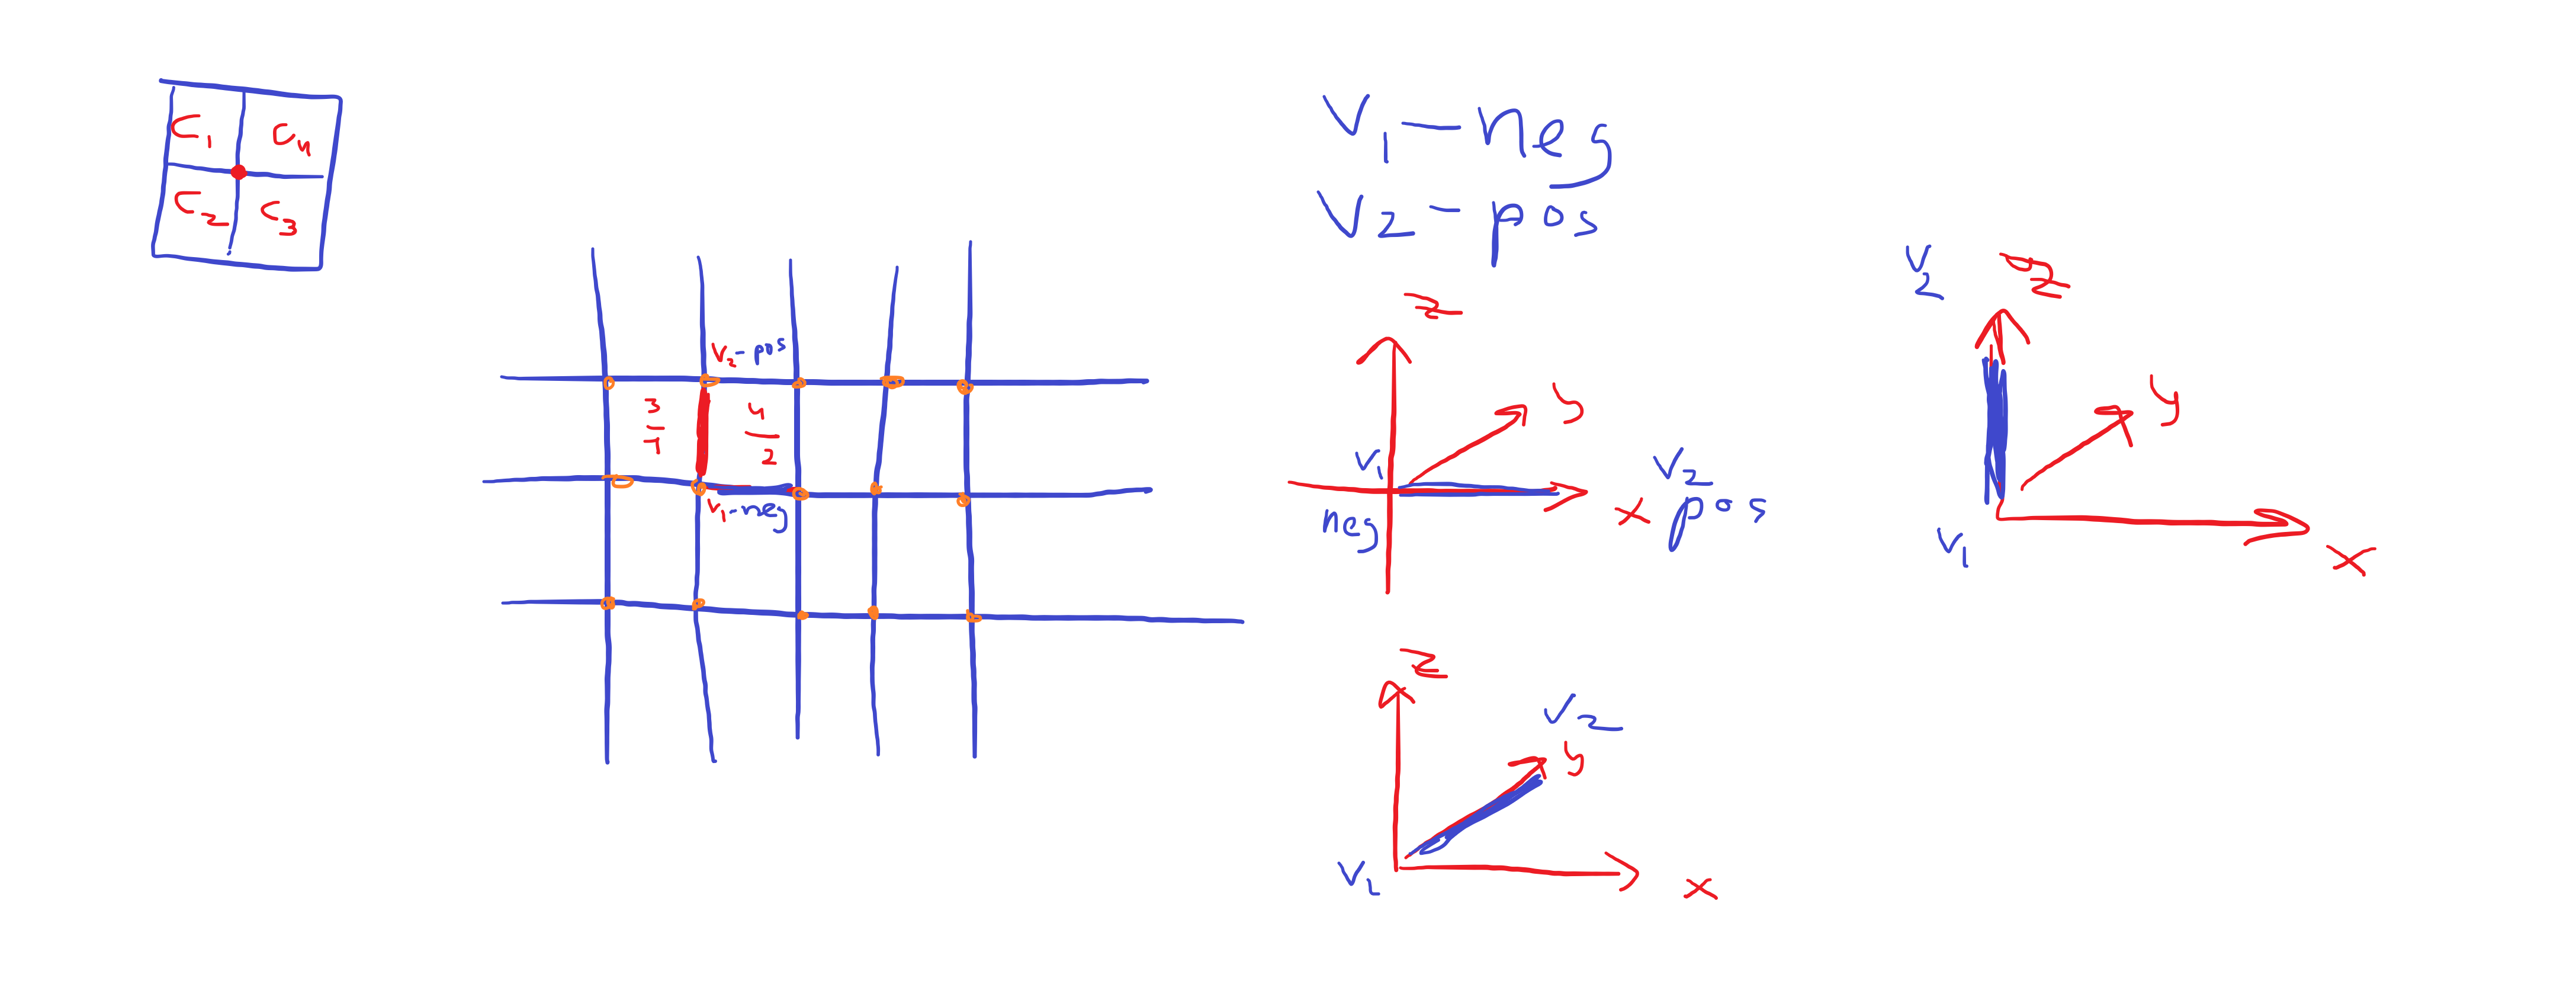 C1 C4
C2 C3
V2-pos
3/1 4/2
V1-neg
V1-neg
V2-pos
z
y
V1
neg
V2
pos
x
z
V2
y
V1
x
V2
z
y
V1
x